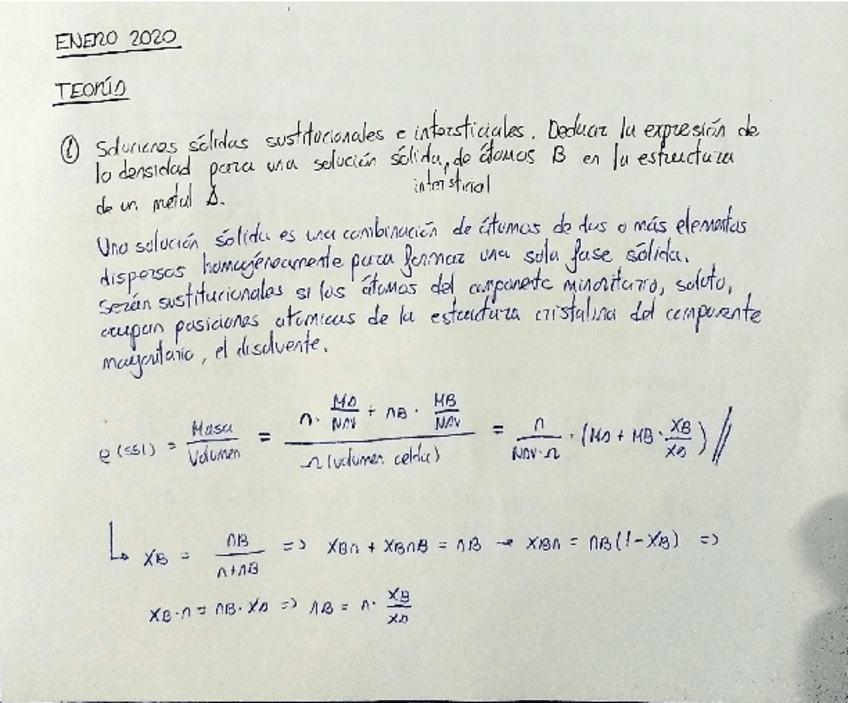 ENERO 2020
TEORÍA
① Soluciones sólidas sustitucionales e intersticiales. Deducir la expresión de
la densidad para una solución sólida, de átomos B en la estructura
intersticial
de un metal A.
Una solución sólida es una combinación de átomos de dos o más elementos
dispersos homogéneamente para formar una sola fase sólida.
Serán sustitucionales si los átomos del componente minoritario, soluto,
ocupan posiciones atómicas de la estructura cristalina del componente
mayoritario, el disolvente.
ρ(SSI) = Masa / Volumen = (n · MA/NAV + nB · MB/NAV) / Ω (volumen celda) = n / (NAV·Ω) · (MA + MB · XB/XA) //
↳ XB = nB / (n+nB) => XBn + XBnB = nB → XBn = nB(1-XB) =>
XB·n = nB·XA => nB = n · XB/XA